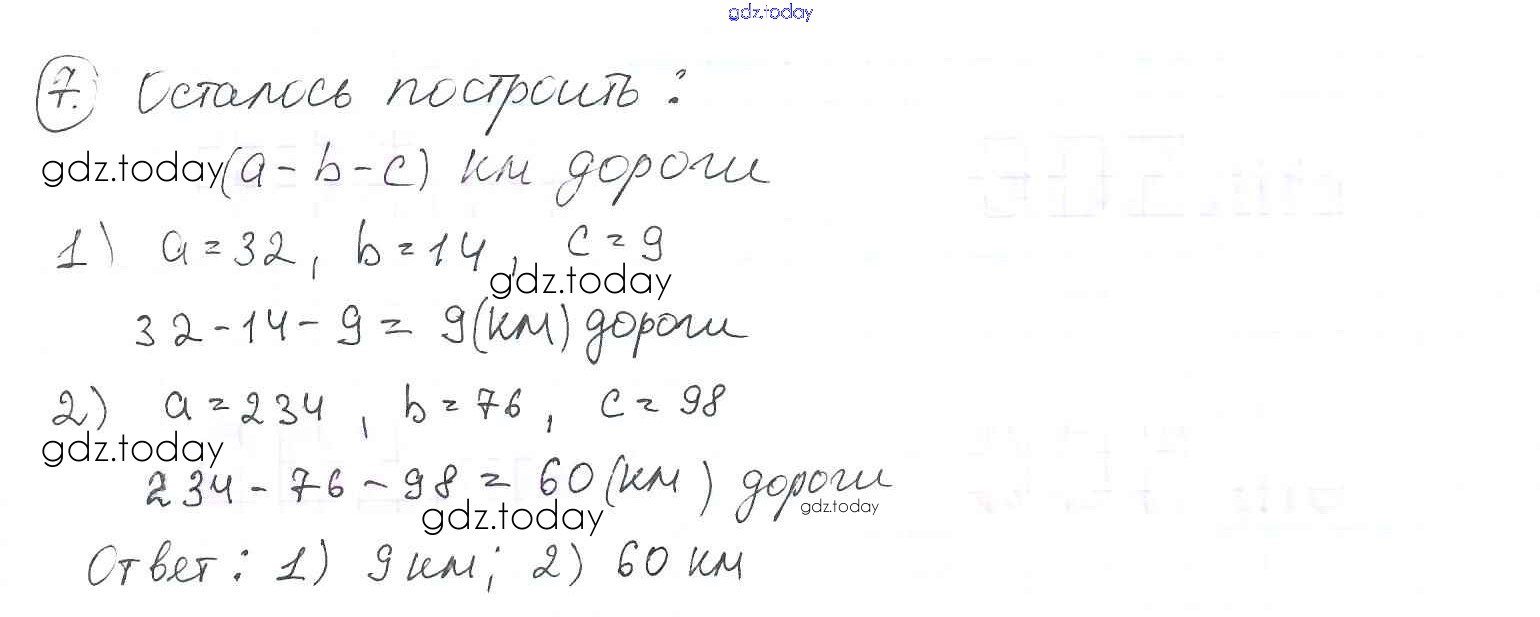 gdz.today
7. Осталось построить:
gdz.today (a - b - c) км дороги
1) a = 32, b = 14, c = 9
gdz.today
32 - 14 - 9 = 9 (км) дороги
2) a = 234, b = 76, c = 98
gdz.today
234 - 76 - 98 = 60 (км) дороги
gdz.today gdz.today
Ответ: 1) 9 км; 2) 60 км